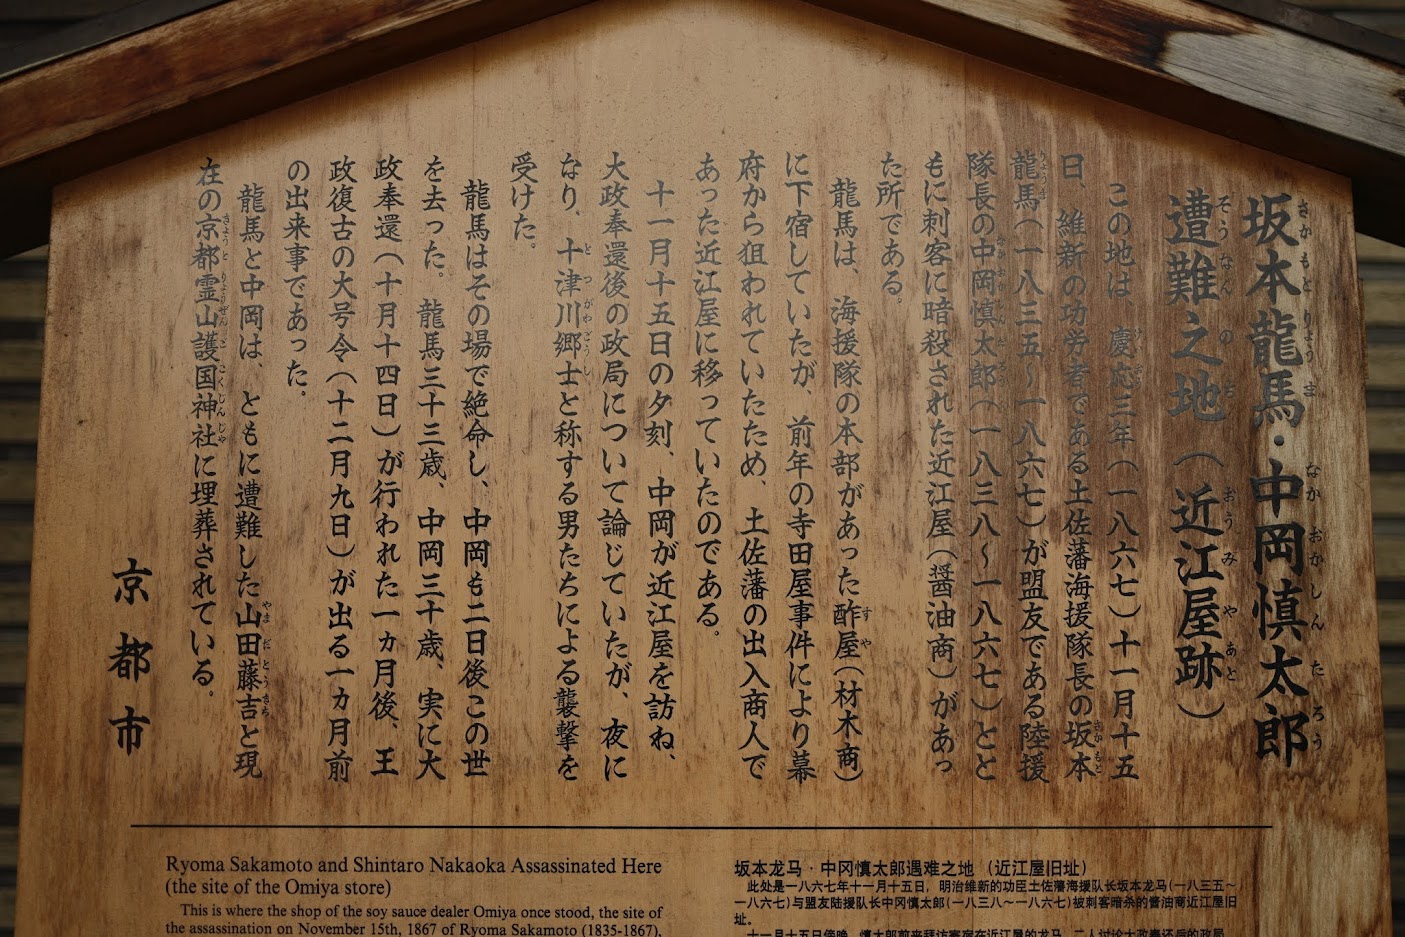 坂本龍馬・中岡慎太郎
遭難之地（近江屋跡）
この地は、慶応三年（一八六七）十一月十五
日、維新の功労者である土佐藩海援隊長の坂本
龍馬（一八三五〜一八六七）が盟友である陸援
隊長の中岡慎太郎（一八三八〜一八六七）とと
もに刺客に暗殺された近江屋（醤油商）があっ
た所である。
龍馬は、海援隊の本部があった酢屋（材木商）
に下宿していたが、前年の寺田屋事件により幕
府から狙われていたため、土佐藩の出入商人で
あった近江屋に移っていたのである。
十一月十五日の夕刻、中岡が近江屋を訪ね、
大政奉還後の政局について論じていたが、夜に
なり、十津川郷士と称する男たちによる襲撃を
受けた。
龍馬はその場で絶命し、中岡も二日後この世
を去った。龍馬三十三歳、中岡三十歳、実に大
政奉還（十月十四日）が行われた一ヵ月後、王
政復古の大号令（十二月九日）が出る一ヵ月前
の出来事であった。
龍馬と中岡は、ともに遭難した山田藤吉と現
在の京都霊山護国神社に埋葬されている。
京都市
Ryoma Sakamoto and Shintaro Nakaoka Assassinated Here
(the site of the Omiya store)
This is where the shop of the soy sauce dealer Omiya once stood, the site of
the assassination on November 15th, 1867 of Ryoma Sakamoto (1835-1867),
坂本龙马・中冈慎太郎遇难之地（近江屋旧址）
此处是一八六七年十一月十五日，明治维新的功臣土佐藩海援队长坂本龙马(一八三五～
一八六七)与盟友陆援队长中冈慎太郎(一八三八～一八六七)被刺客暗杀的酱油商近江屋旧
址。
十一月十五日傍晚，慎太郎前来拜访寄宿在近江屋的龙马，二人讨论大政奉还后的政局